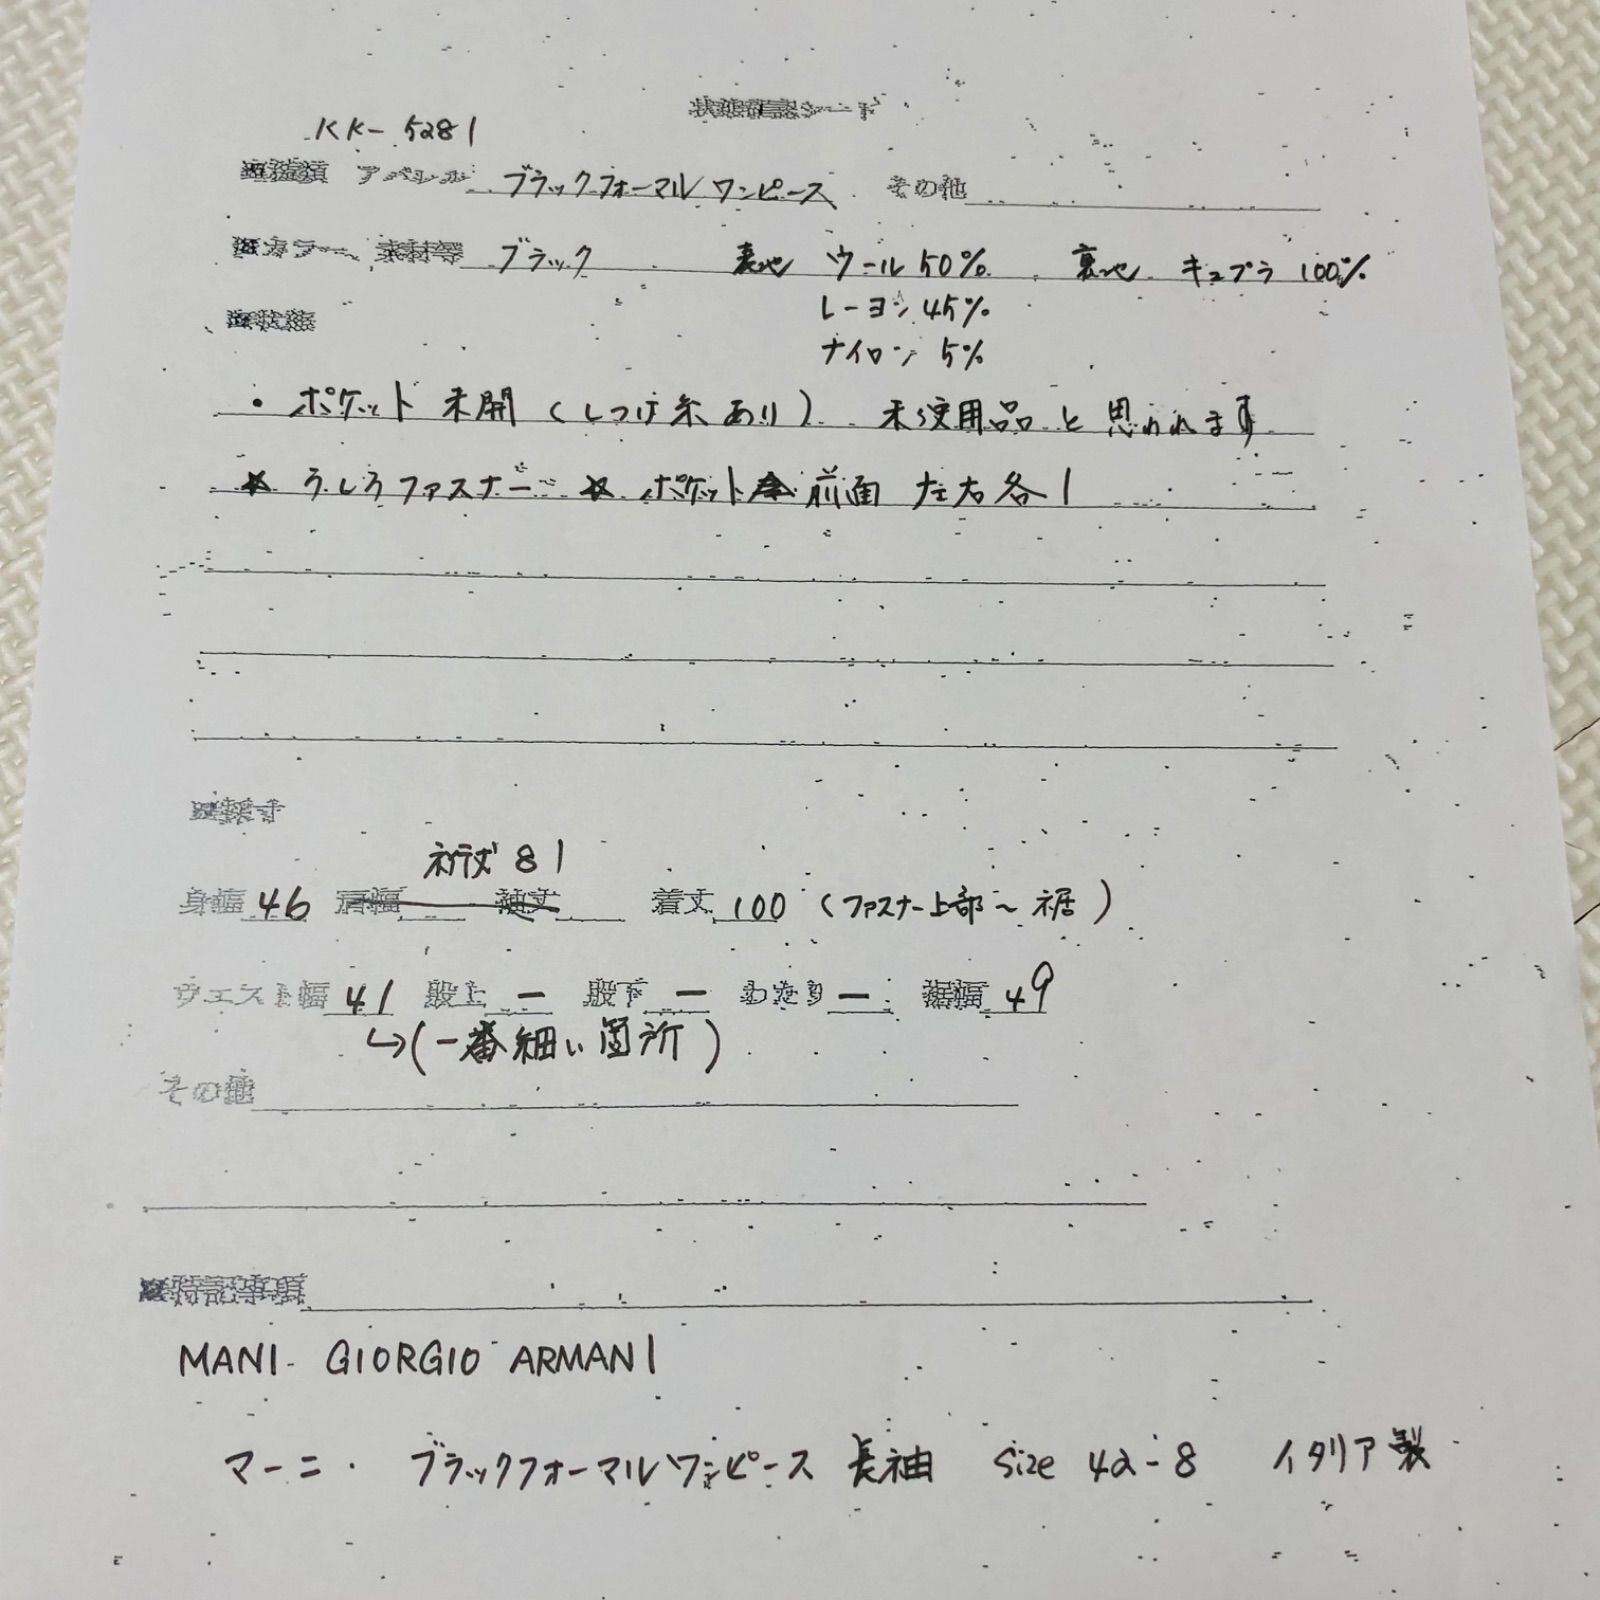 状態確認シート
KK-5281
■種類 アパレル ブラックフォーマルワンピース その他
■カラー、素材等 ブラック 表地 ウール50% 裏地 キュプラ100%
レーヨン 45%
ナイロン 5%
■状態
・ポケット未開(しつけ糸あり) 未使用品と思われます
☆うしろファスナー ☆ポケット 前面 左右各1
■採寸
裄丈 81
身幅 46 肩幅 袖丈 着丈 100 (ファスナー上部~裾)
ウエスト幅 41 股上 ー 股下 ー わたり ー 裾幅 49
↳(一番細い箇所)
その他
■特記事項
MANI GIORGIO ARMANI
マーニ・ブラックフォーマルワンピース 長袖 size 42-8 イタリア製